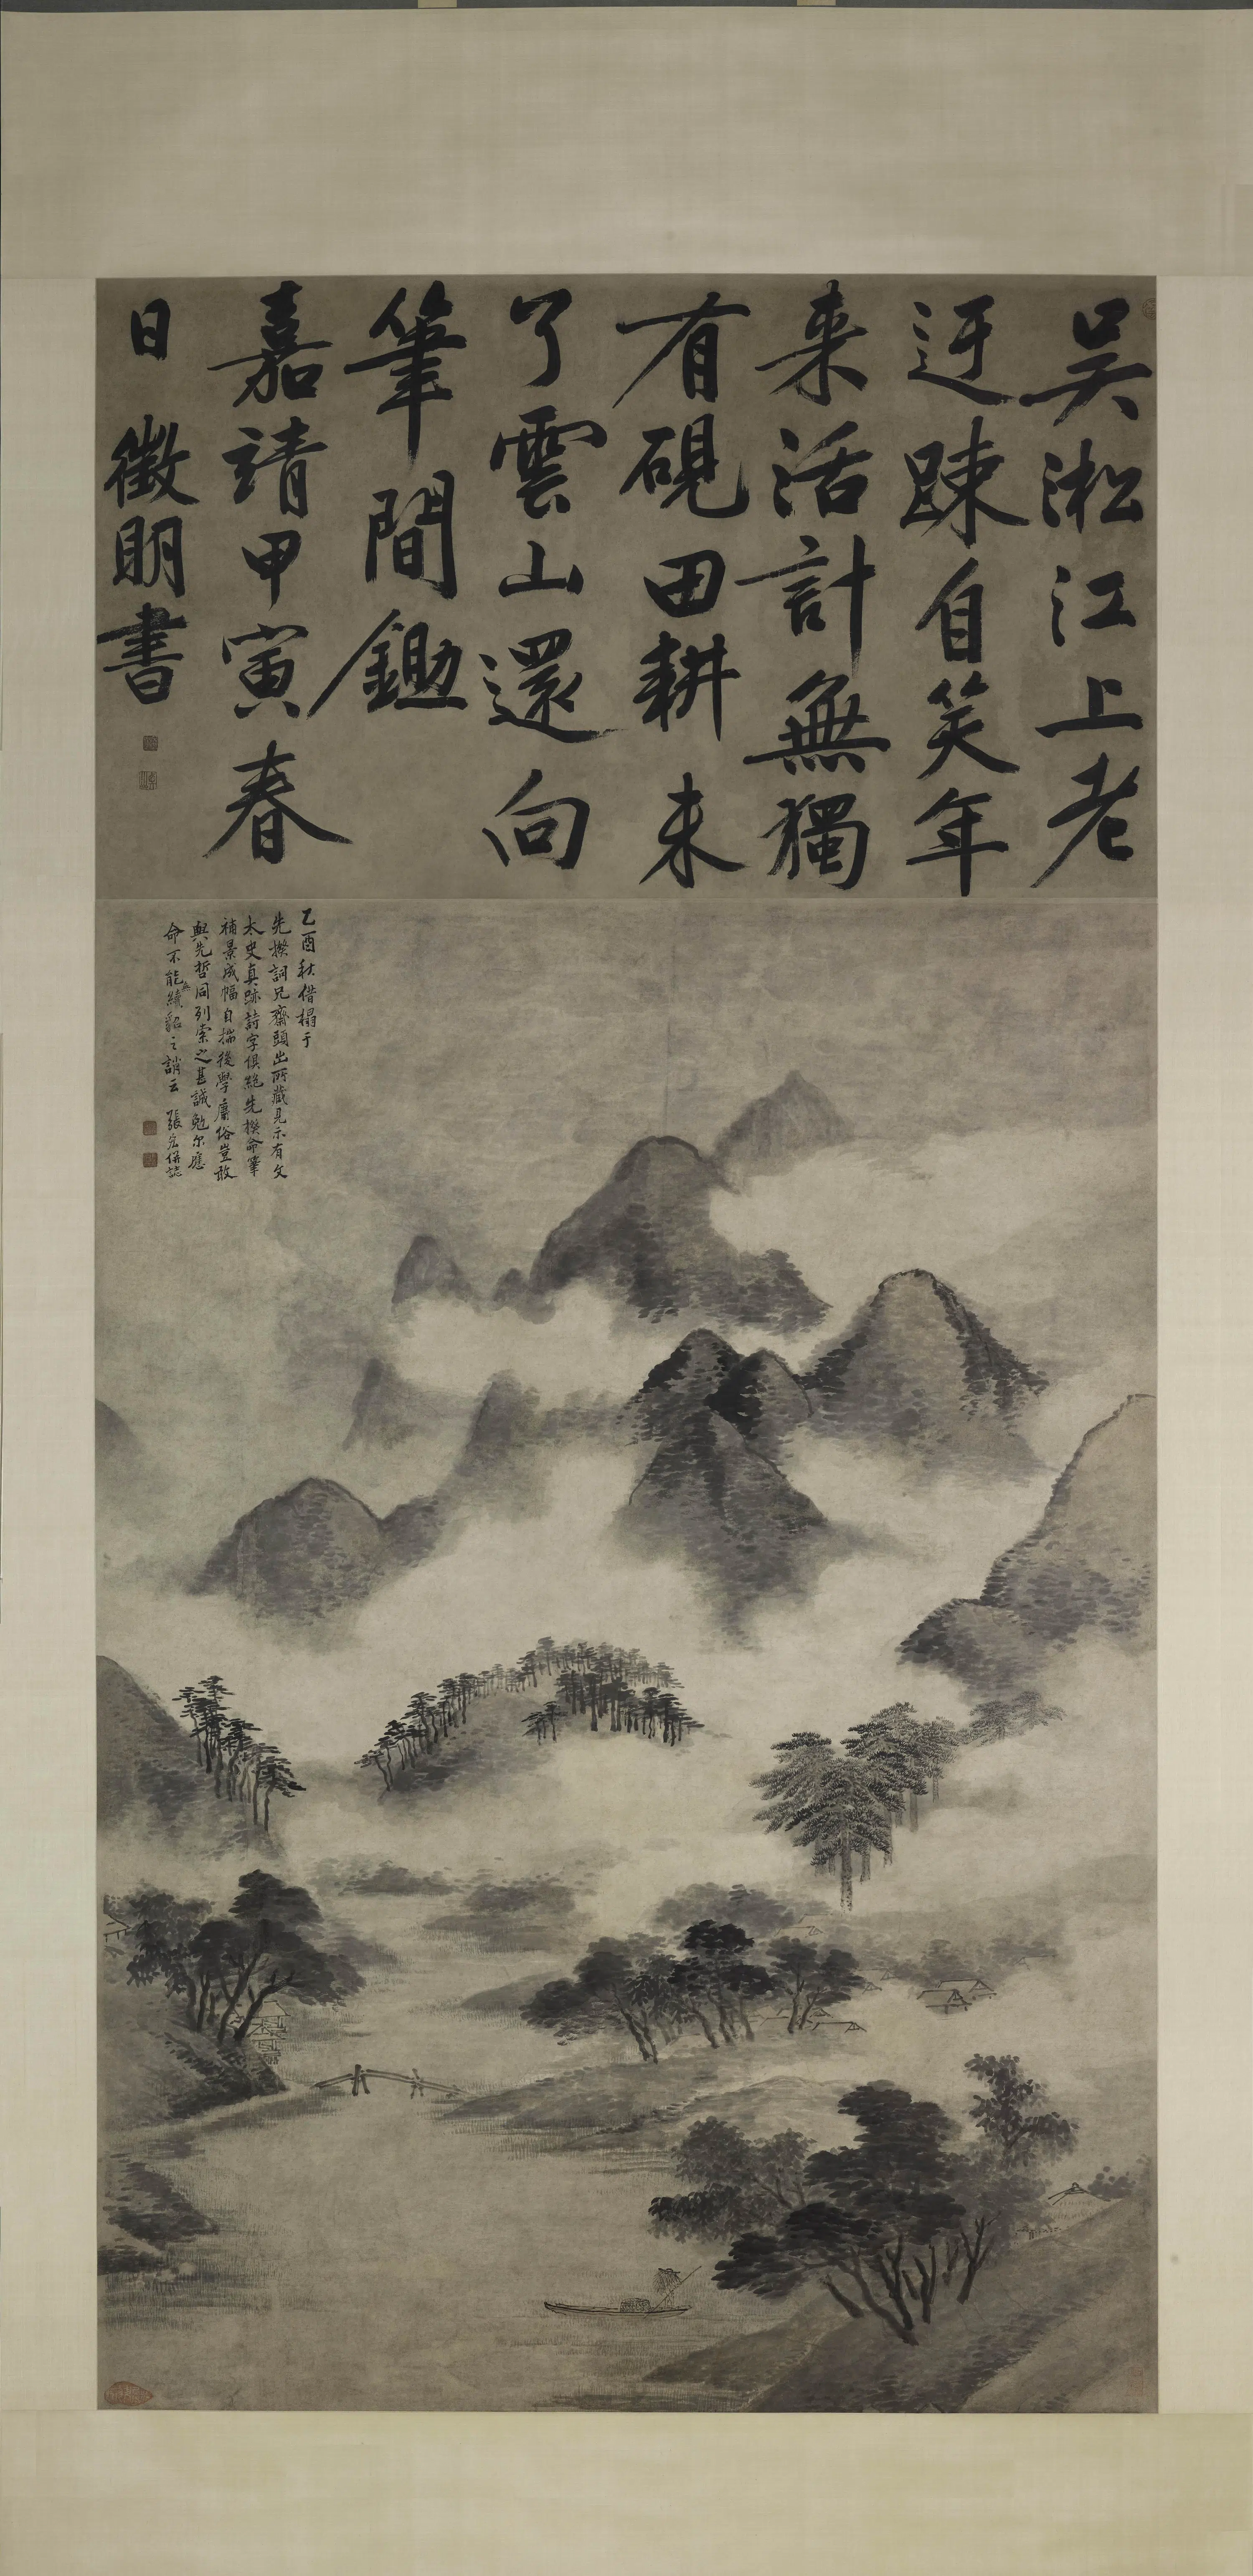 吴淞江上老
迂踈自笑年
来活計無獨
有硯田耕未
了雲山還向
筆間鋤
嘉靖甲寅春
日徵明書
乙酉秋借榻于
先揆詞兄齋頭出所藏見示有文
太史真跡詩字俱絶先揆命筆
補景成幅自揣後學庸俗豈敢
與先哲同列索之甚誠勉尓應
命不能無續貂之誚云 張宏併誌